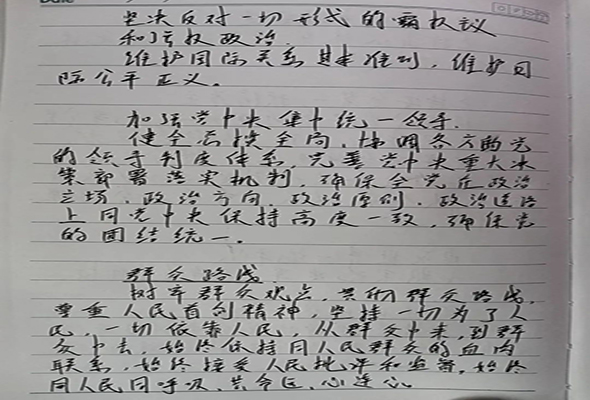 Date
坚决反对一切形式的霸权议
和强权政治.
维护国际关系基本准则，维护国
际公平正义。
加强党中央集中统一领导.
健全总揽全局，协调各方的党
的领导制度体系，完善党中央重大决
策部署落实机制，确保全党在政治
立场，政治方向，政治原则，政治道路
上同党中央保持高度一致，确保党
的团结统一.
群众路线
树牢群众观点，贯彻群众路线，
尊重人民首创精神，坚持一切为了人
民，一切依靠人民，从群众中来，到群
众中去，始终保持同人民群众的血肉
联系，始终接受人民批评和监督，始终
同人民同呼吸、共命运、心连心.